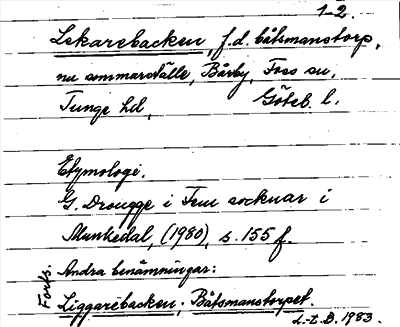 1-2.
Lekarebacken, f.d. båtsmanstorp,
nu sommarställe, Bärby, Foss sn,
Tunge hd, Göteb. l.
Etymologi.
G. Drougge i Fem socknar i
Munkedal, (1980), s. 155 f.
Andra benämningar:
Liggarebacken; Båtsmanstorpet.
Forts.
L-t. B. 1983.